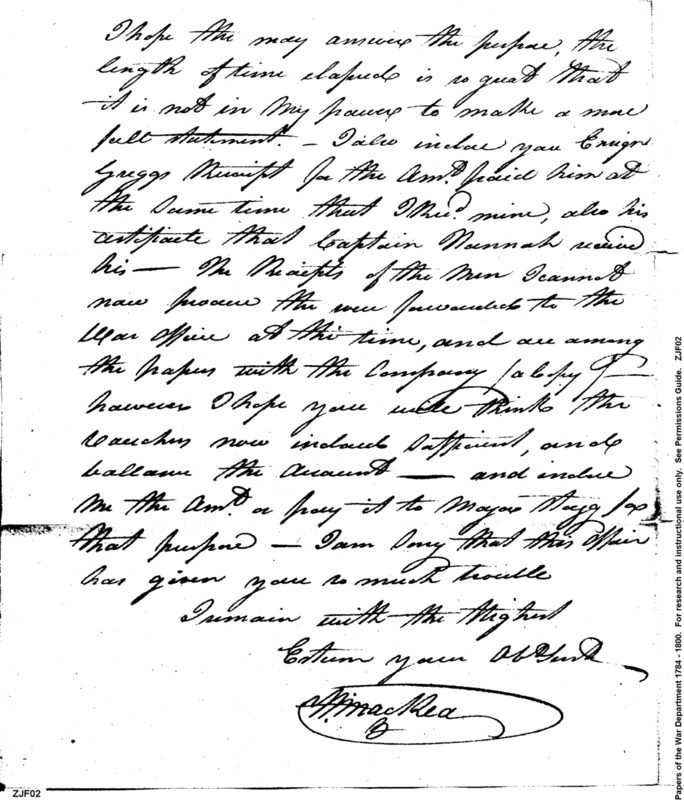 I hope the may answer the purpose, the
length of time elapsed is so great that
it is not in My power to make a more
full statement. – I also inclose you Ensign
Greggs Receipt for the Amt. paid him at
the same time that I Recd. mine, also his
certificate that Captain Hannah receive
his — The Receipts of the Men I cannot
now procure the were forwarded to the
War Office at the time, and are among
the papers with the Company
however I hope you will think the
vouchers now inclosed sufficient, and
ballance the Account — and inclose
me the Amt or pay it to Major Stagg for
that purpose — I am Sorry that this affair
has given you so much trouble
I remain with the Highest
Esteem your Obt Servt
Wm MacRea
ZJF02
Papers of the War Department 1784 - 1800. For research and instructional use only. See Permissions Guide. ZJF02